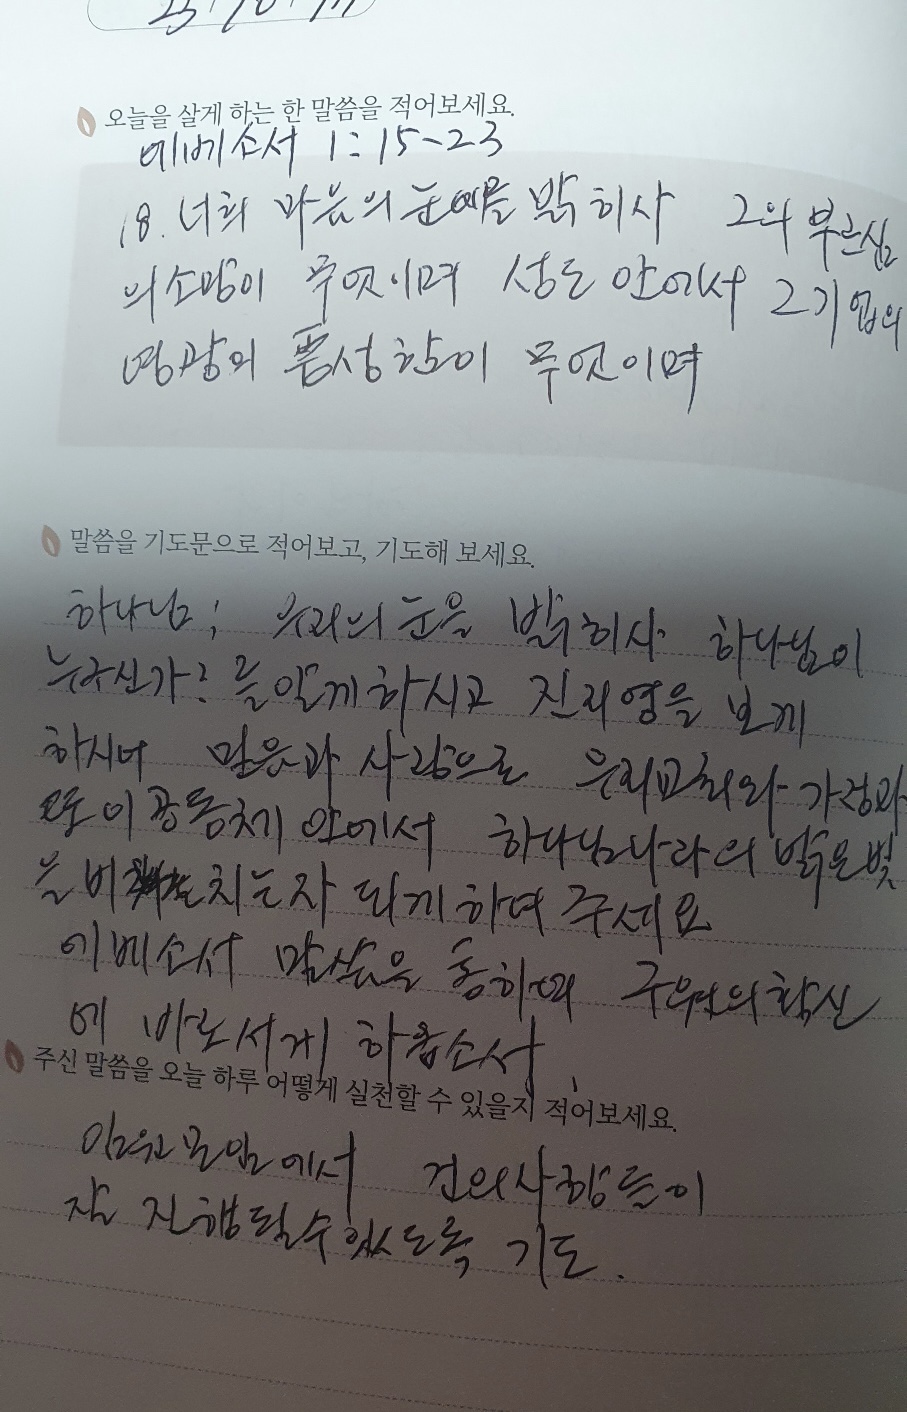 오늘을 살게 하는 한 말씀을 적어보세요.
에베소서 1:15~23
18. 너희 마음의 눈을 밝히사 그의 부르심
의 소망이 무엇이며 성도 안에서 그 기업의
영광의 풍성함이 무엇이며
말씀을 기도문으로 적어보고, 기도해 보세요.
하나님; 우리의 눈을 밝히사 하나님이
누구신가? 를 알게하시고 진리영을 보게
하시어 믿음과 사랑으로 우리교회와 가정과
이 공동체 안에서 하나님나라의 밝은 빛
을 비치는자 되게하여 주세요
에베소서 말씀을 통하여 구원의 확신
에 바로서게 하옵소서
주신 말씀을 오늘 하루 어떻게 실천할 수 있을지 적어보세요.
임원모임에서 건의사항들이
잘 진행될수 있도록 기도.